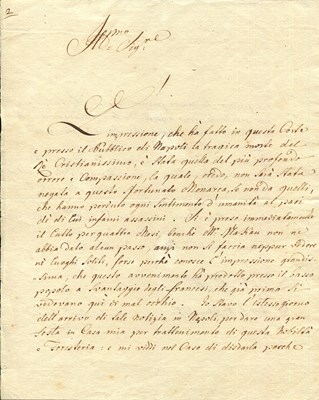 Ill.mo Sig.re
L'impressione, che hà fatto in questa Corte
e presso il Pubblico di Napoli la tragica morte del
Rè Cristianissimo, è stata quella del più profondo
orrore e compassione, la quale, credo, non sarà stata
negata a questo sfortunato Monarca, se non da quelli,
che hanno perduto ogni sentimento d'umanità al pari
di lui infami assassini. Si è preso immediatamente
il Lutto per quattro Mesi, benché Mr. Makau non ne
abbia dato alcun passo, anzi non si faccia neppur vedere
ne luoghi soliti, forse perchè conosce l'impressione grandis=
sima, che questo avvenimento ha prodotto presso il basso
popolo a svantaggio degli francesi, che già prima si
vedevano qui di mal occhio. Io stavo l'istesso giorno
dell'arrivo di tale notizia in Napoli, per dare una gran
festa in Casa mia per trattenimento di questa Nobiltà
e Foresteria; e mi viddi nel Caso di disdirla perchè